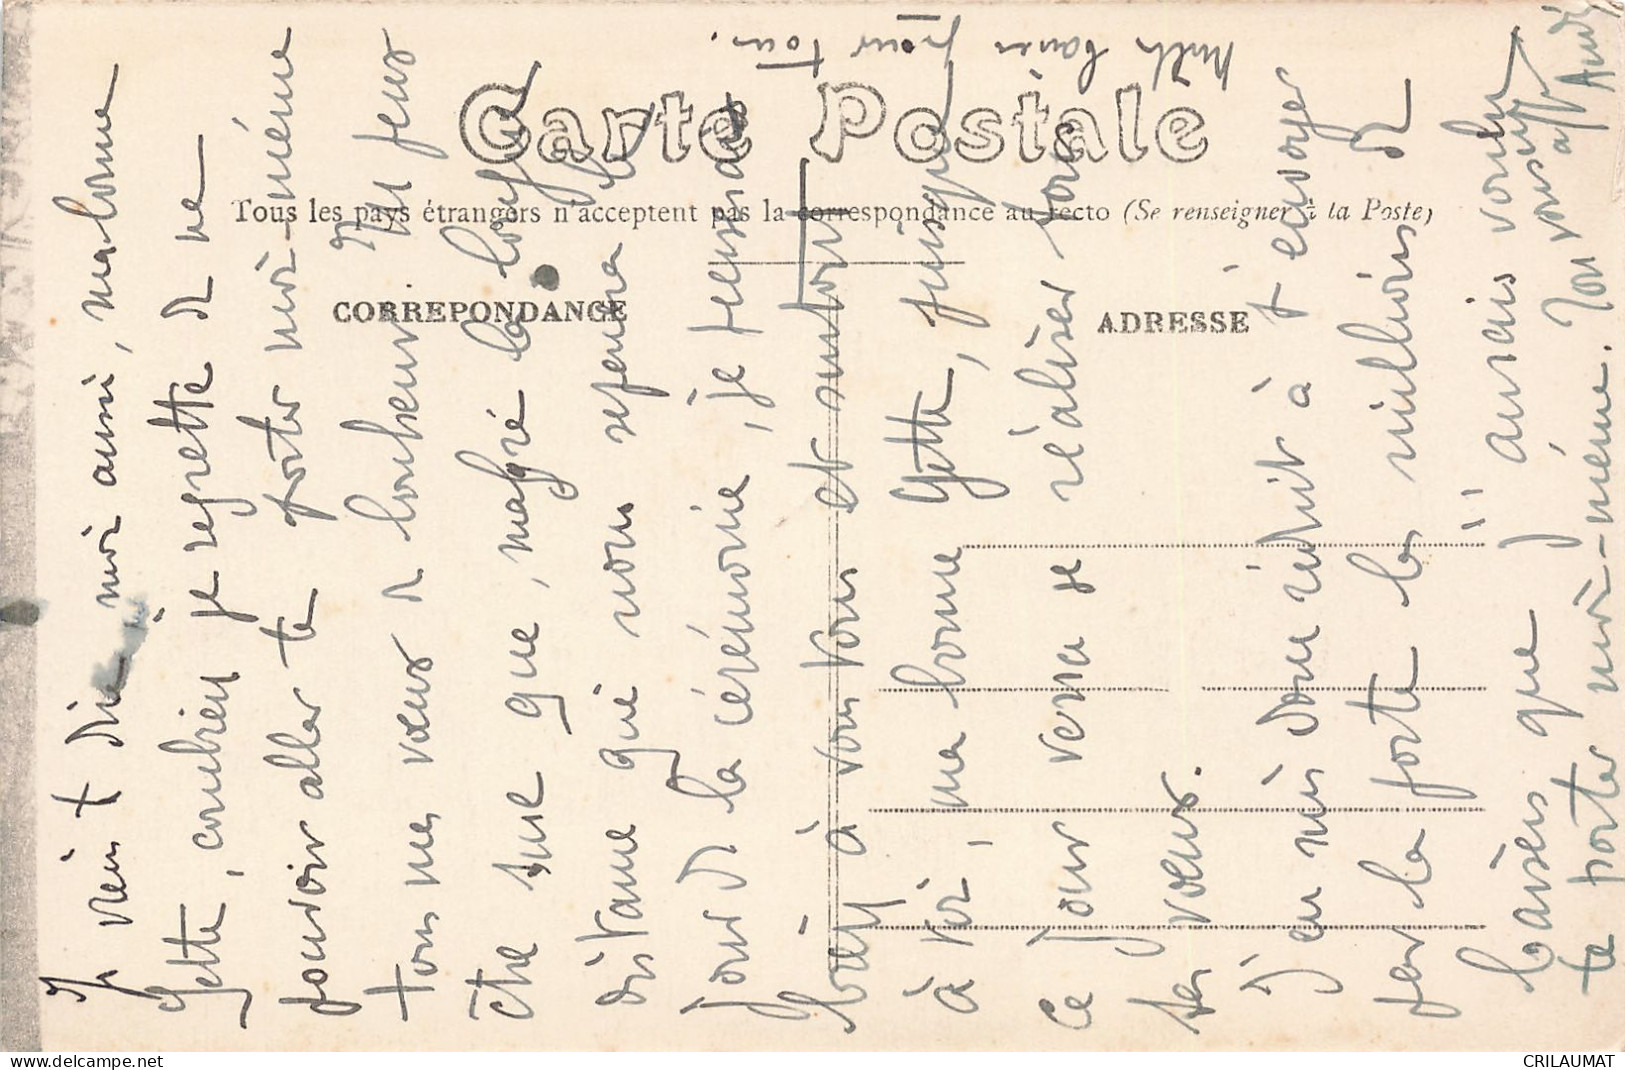 Carte Postale
Tous les pays étrangers n'acceptent pas la correspondance au recto (Se renseigner à la Poste)
CORREPONDANCE
ADRESSE
Je viens te dire moi aussi, ma bonne
Yette, combien je regrette de ne
pouvoir aller te porter moi-même
tous mes vœux de bonheur. Tu peux
être sure que, malgré la longue
distance qui nous séparera le
jour de la cérémonie, je penserai
bien à vous tous et surtout
à toi, ma bonne Yette, puisque
ce jour verra se réaliser tous
tes vœux.
J'en suis donc réduit à t'envoyer
par la poste les millions de
baisers que j'aurais voulu
te porter moi-même. Ton cousin
aff. André
Mille baisers pour Tous.
CRILAUMAT